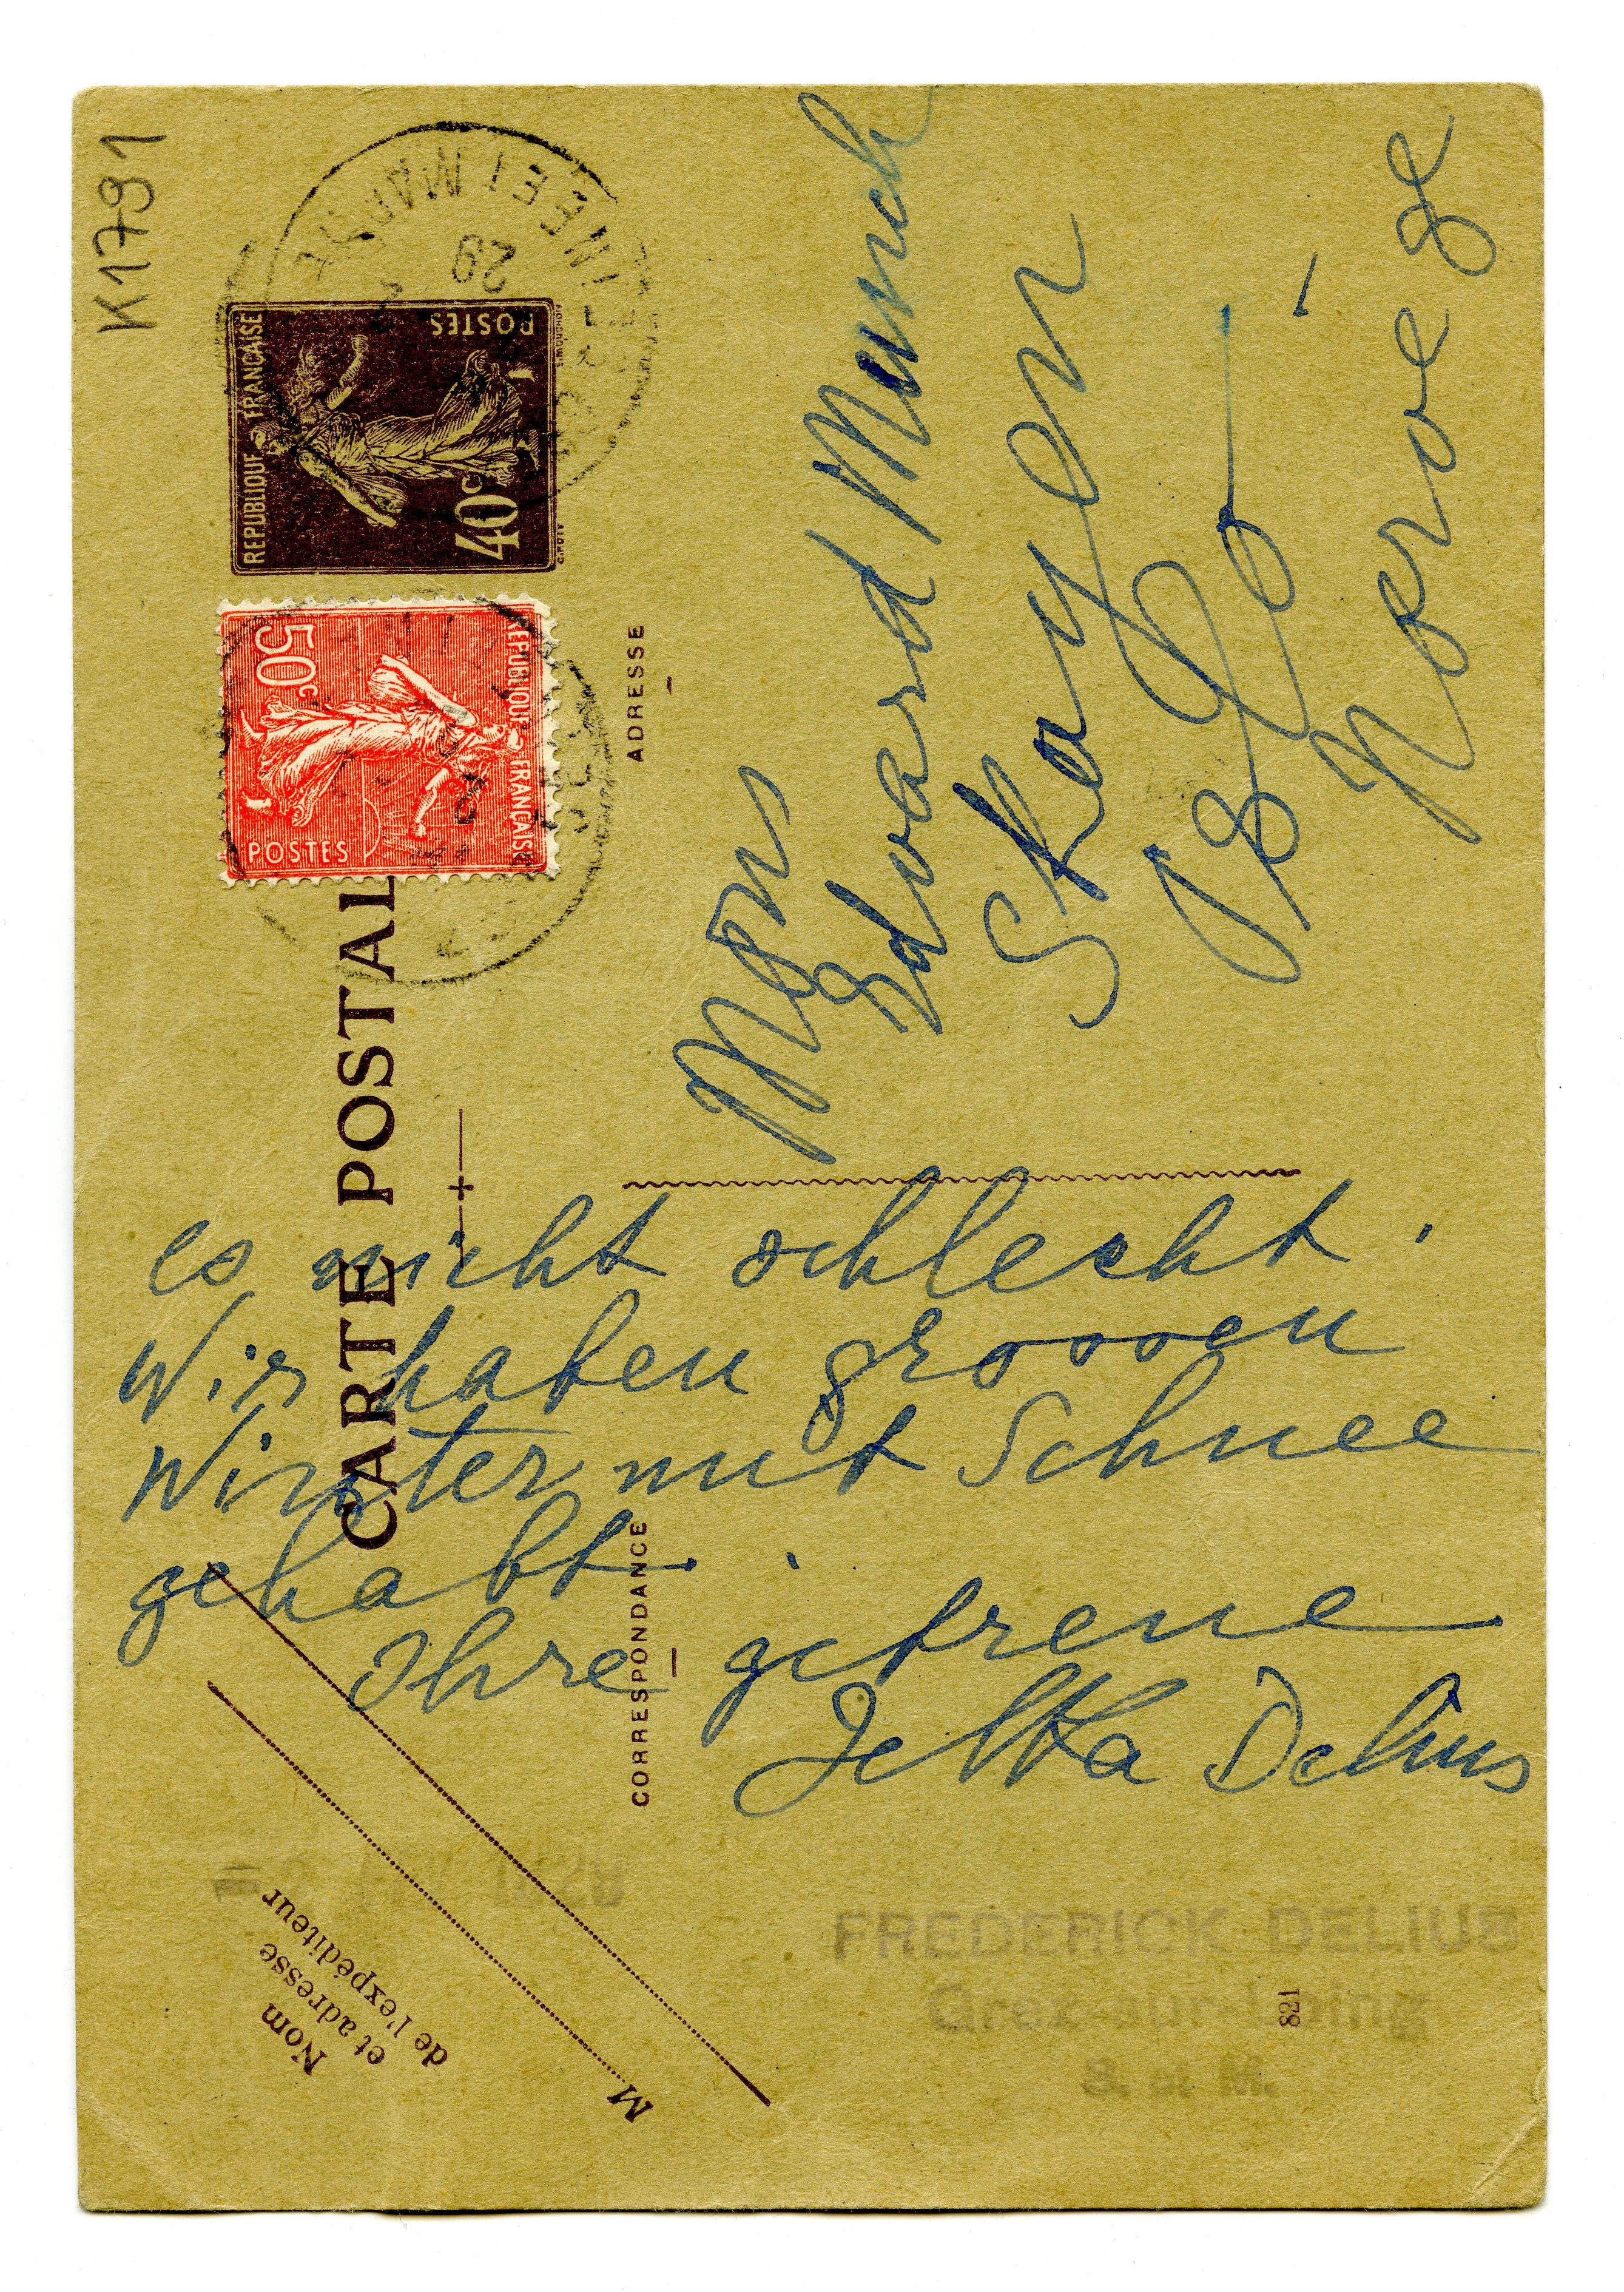 K1791
REPUBLIQUE FRANÇAISE
POSTES
40c
REPUBLIQUE FRANÇAISE
50c
POSTES
CARTE POSTAL
ADRESSE
Mons
Edvard Munch
Skøyen
Oslo
Norvège
CORRESPONDANCE
es nicht schlecht.
Wir haben grossen
Winter mit Schnee
gehabt.
Ihre getreue
Jelka Delius
Nom
et adresse
de l'expéditeur
M
FREDERICK DELIUS
Grez-sur-Loing
S. et M.
821
SEINE ET MARNE
29